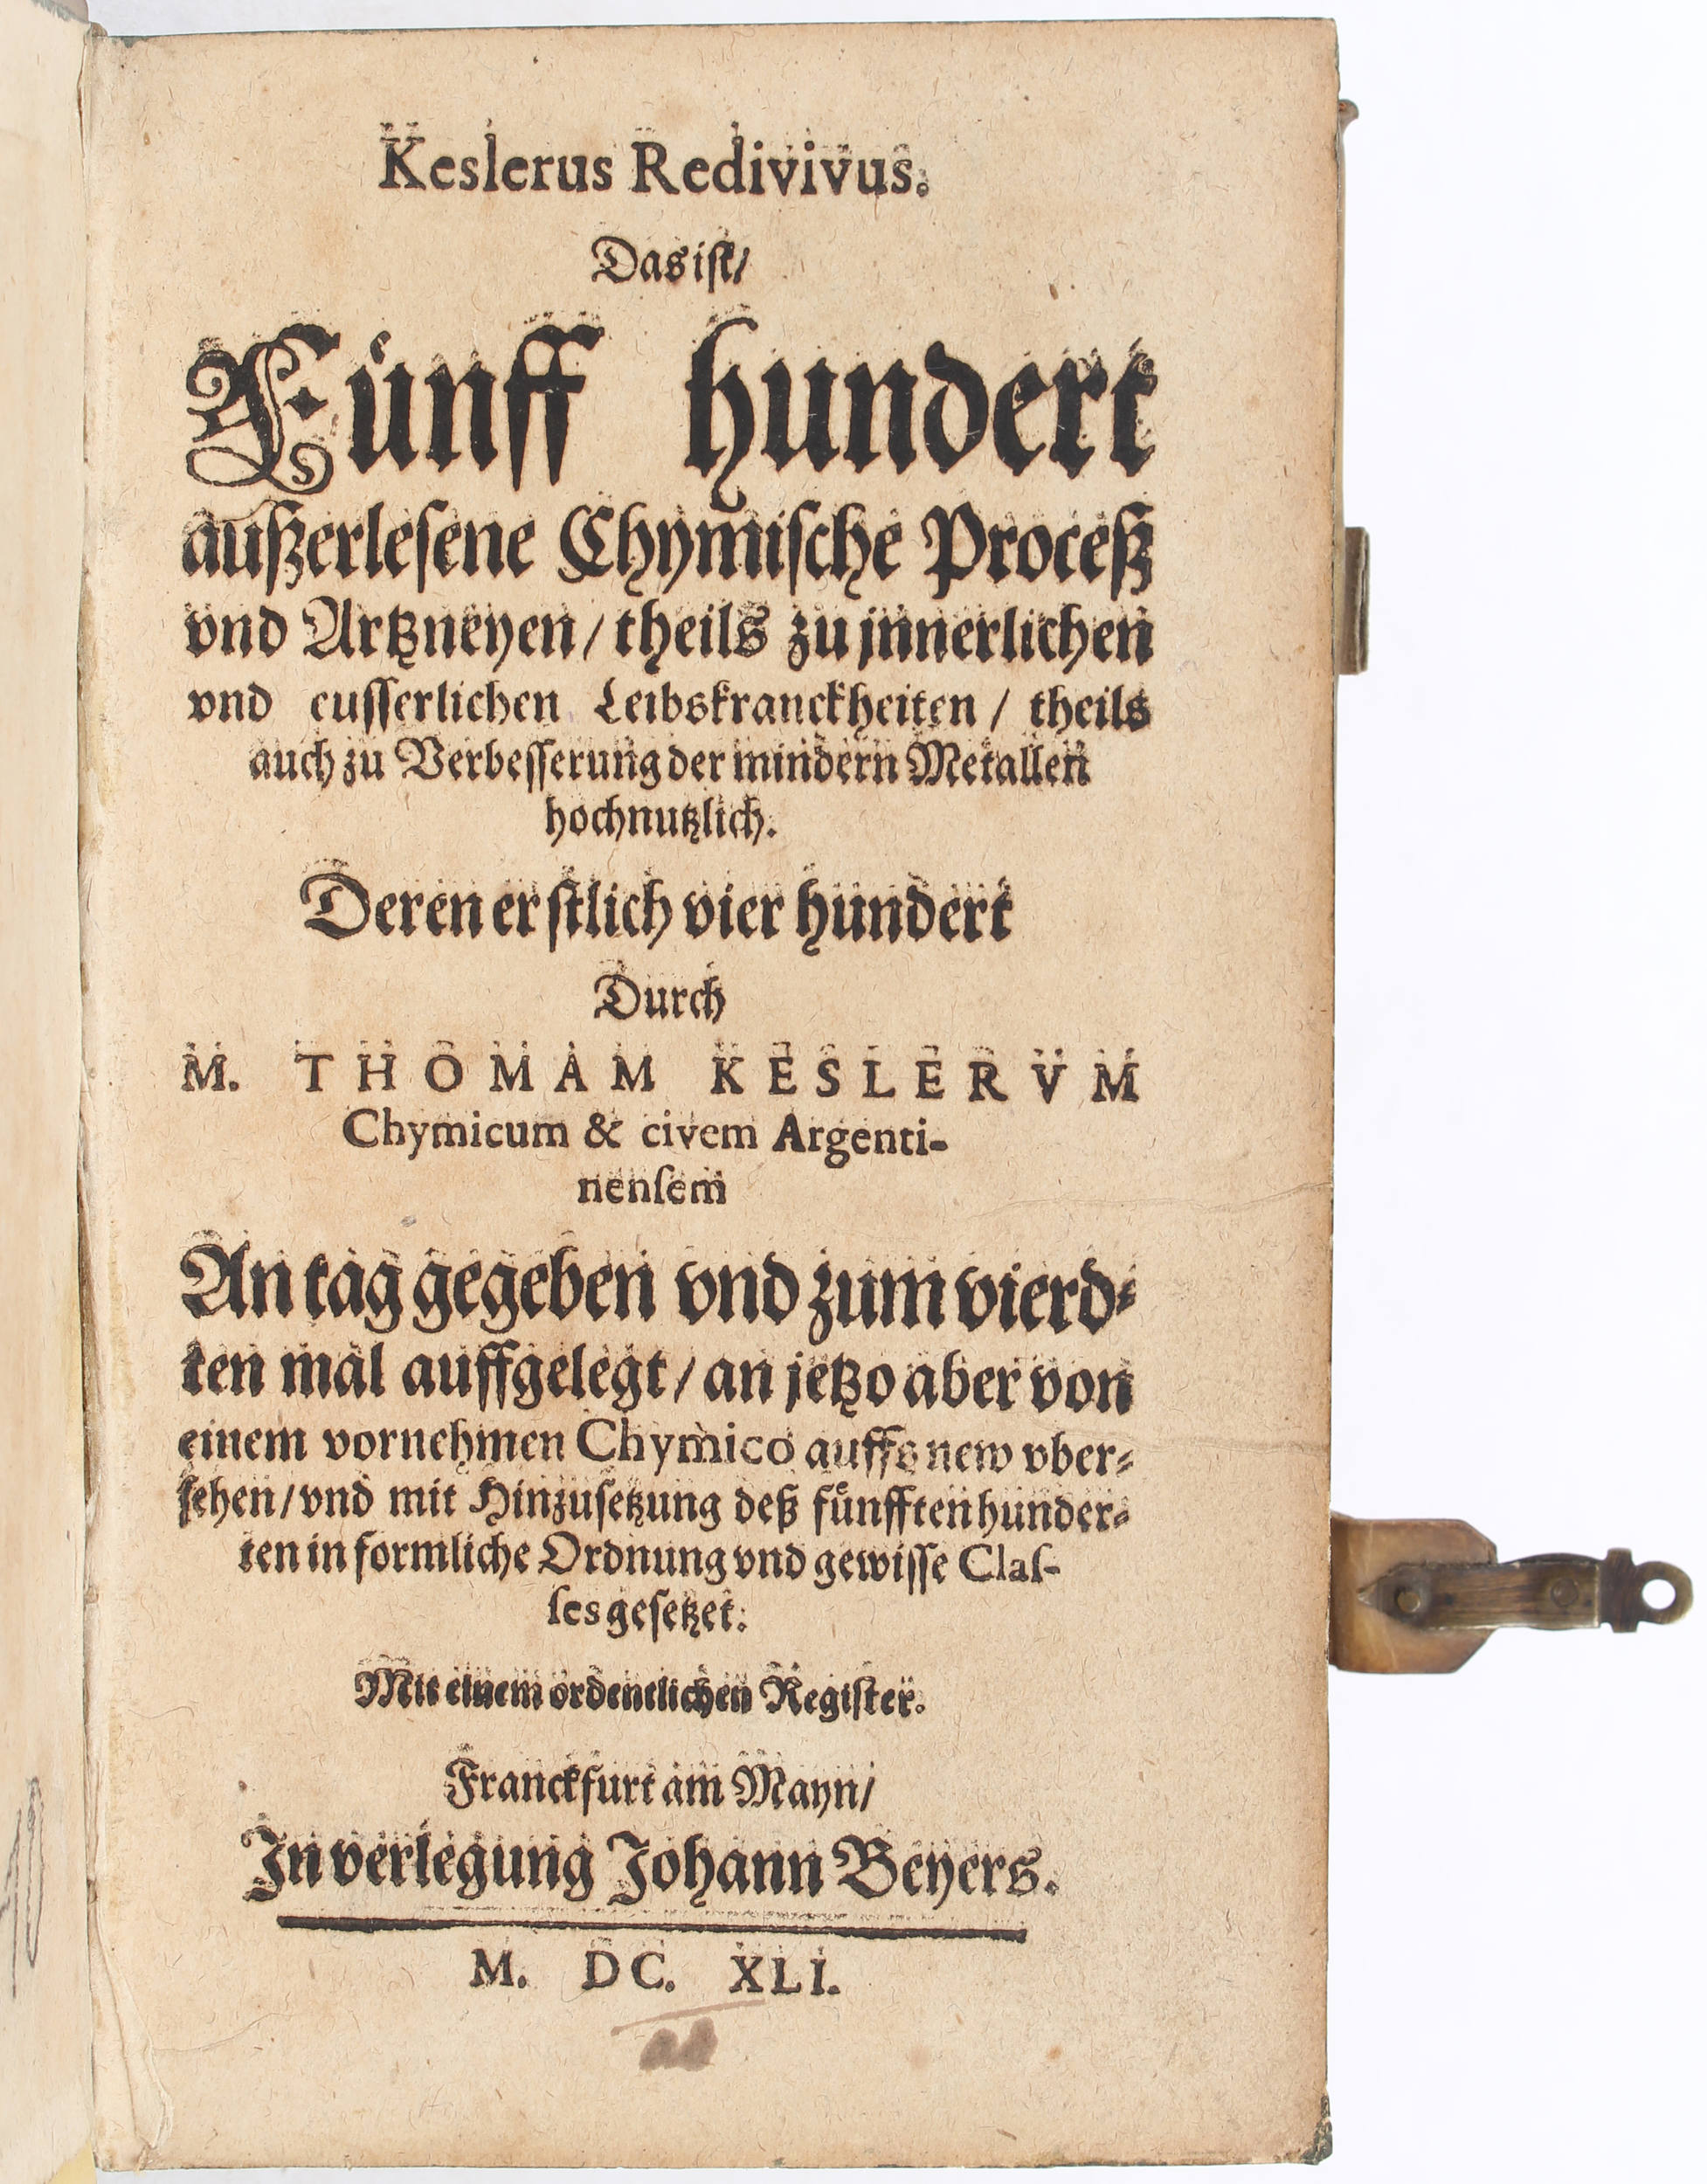 Keslerus Redivivus.
Das iſt/
Fuͤnff hundert
außerleſene Chymiſche Proceß
vnd Artzneyen/ theils zu jnnerlichen
vnd euſſerlichen Leibskranckheiten / theils
auch zu Verbeſſerung der mindern Metallen
hochnutzlich.
Deren erſtlich vier hundert
Durch
M. THOMAM KESLERVM
Chymicum & civem Argenti-
nenſem
An tag gegeben vnd zum vierd⸗
ten mal auffgelegt / an jetzo aber von
einem vornehmen Chymico auffs new vber⸗
ſehen / vnd mit Hinzuſetzung deß fuͤnfften hunder⸗
ten in formliche Ordnung vnd gewiſſe Claſ-
ſes geſetzet.
Mit einem ordentlichen Regiſter.
Franckfurt am Mayn/
In verlegung Johann Beyers.
M. DC. XLI.